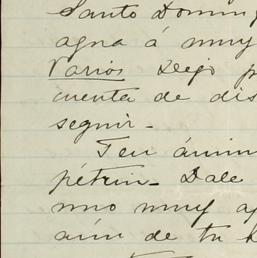 Santo Doming
agua á muy
Varios Dejo p
cuenta de dis
seguir.-
Ten ánim
pétrin- Dale
uno muy ap
aún de tu h